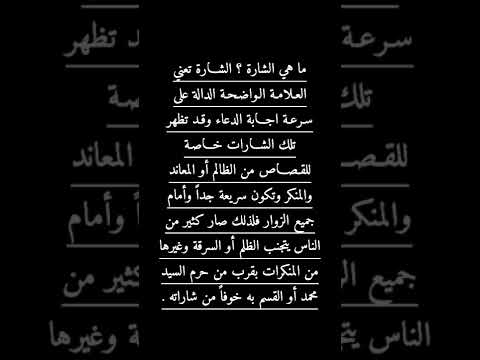 ما هي الشارة ؟ الشارة تعني
العلامة الواضحة الدالة على
سرعة اجابة الدعاء وقد تظهر
تلك الشارات خاصة
للقصاص من الظالم أو المعاند
والمنكر وتكون سريعة جداً وأمام
جميع الزوار فلذلك صار كثير من
الناس يتجنب الظلم أو السرقة وغيرها
من المنكرات بقرب من حرم السيد
محمد أو القسم به خوفاً من شاراته .